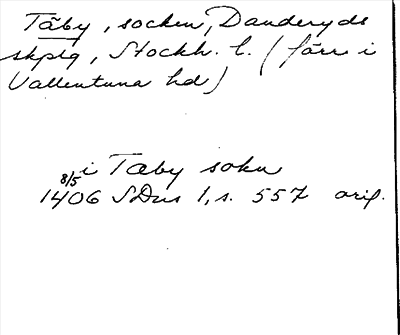 Täby, socken, Danderyds
skplg, Stockh. l. (förr i
Vallentuna hd)
i Tæby sokn
8/5
1406 SDns 1, s. 557 orig.